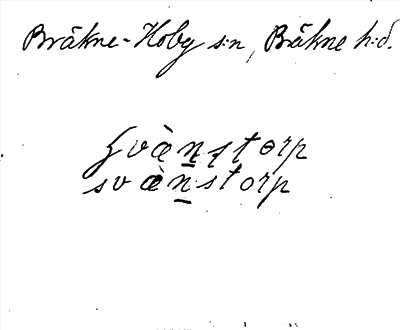 Bräkne-Hoby s:n, Bräkne h:d.
svæ̀n̲stɵrp
svæ̀n̲storp